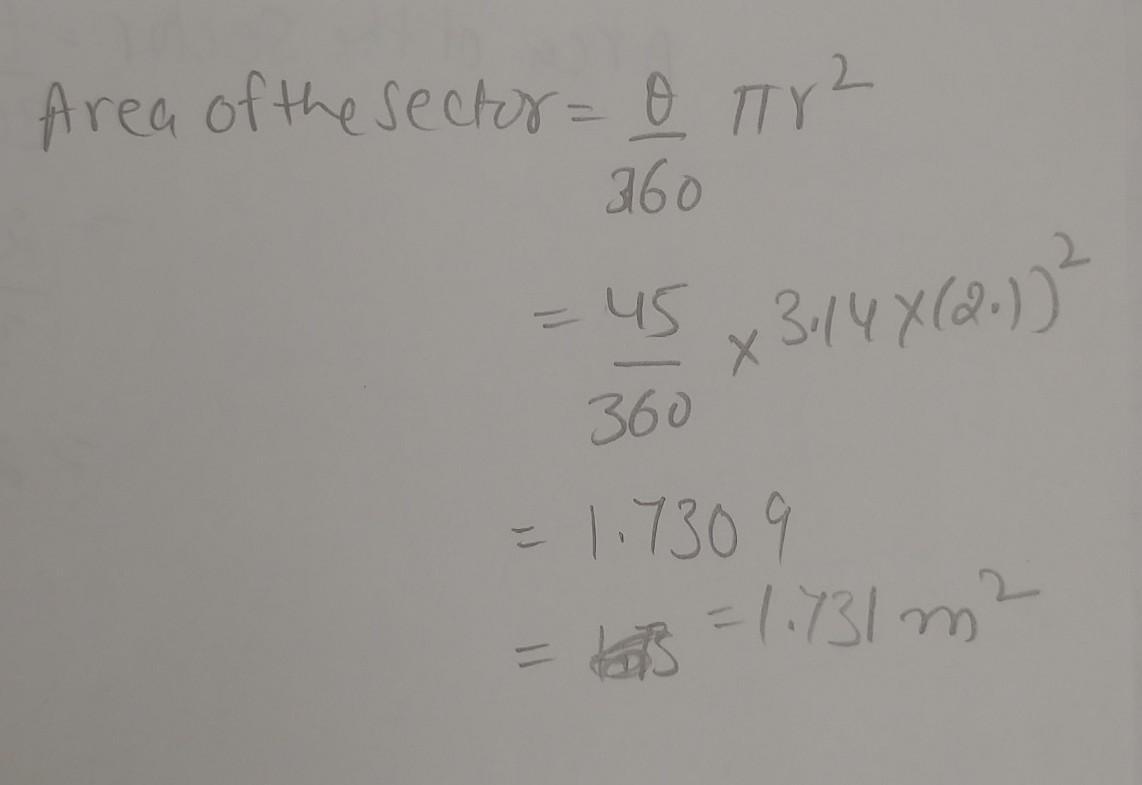 Area of the sector = θ/360 πr²
= 45/360 × 3.14 × (2.1)²
= 1.7309
= = 1.731 m²